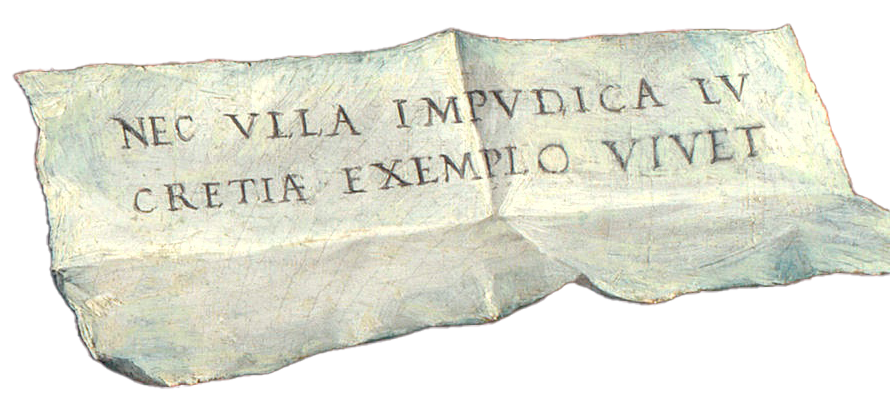 NEC VLLA IMPVDICA LV
CRETIÆ EXEMPLO VIVET